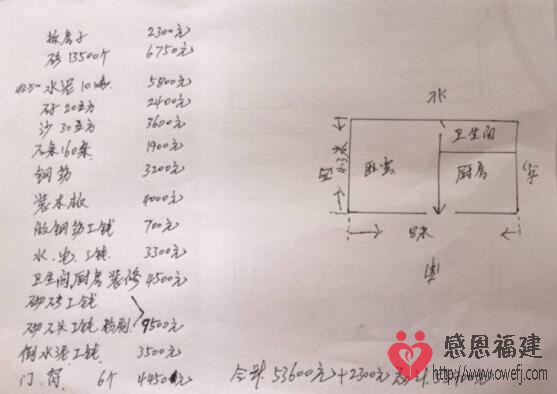 拆房子 2300元
砖13500个 6750元
425# 水泥10吨 5800元
石子20立方 2400元
沙30立方 3600元
石条160条 1900元
钢筋 3200元
装木板 4000元
做钢筋工钱 700元
水.电.工钱 3300元
卫生间厨房装修 4500元
砌砖工钱
砌石头工钱 粉刷 9500元
倒水泥工钱 3500元
门.窗 6个 4450元
合计 53600元+2300元
卫生间
卧室
厨房
4.3米
8米
感恩福建
www.owefj.com